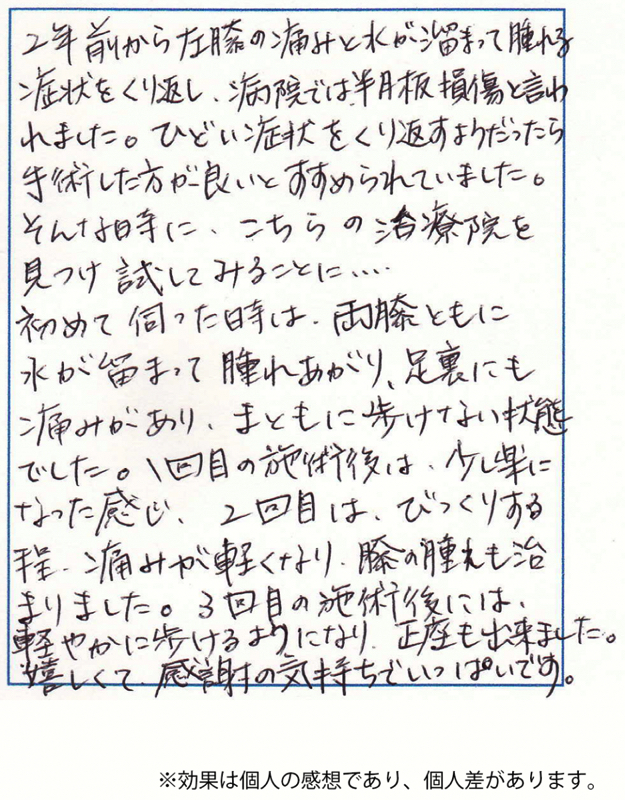 2年前から左膝の痛みと水が溜まって腫れる
症状をくり返し、病院では半月板損傷と言わ
れました。ひどい症状をくり返すようだったら
手術した方が良いとすすめられていました。
そんな時に、こちらの治療院を
見つけ試してみることに....
初めて伺った時は、両膝ともに
水が留まって腫れあがり、足裏にも
痛みがあり、まともに歩けない状態
でした。1回目の施術後は、少し楽に
なった感じ、2回目は、びっくりする
程、痛みが軽くなり、膝の腫れも治
まりました。3回目の施術後には、
軽やかに歩けるようになり、正座も出来ました。
嬉しくて、感謝の気持ちでいっぱいです。
※効果は個人の感想であり、個人差があります。